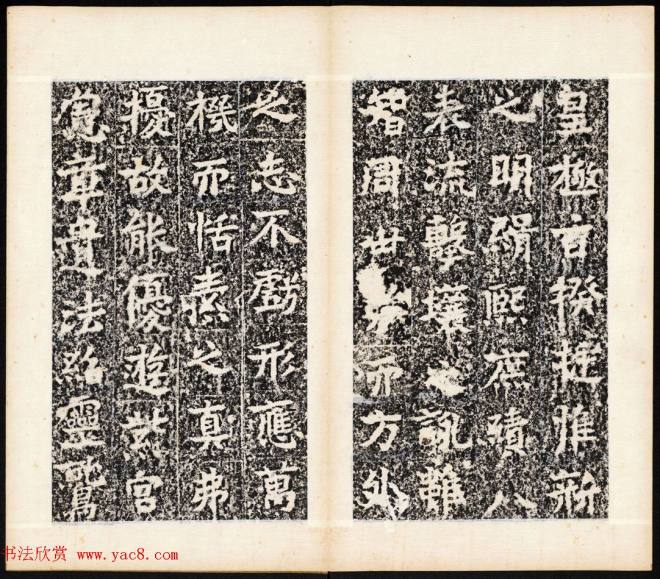 皇極百揆挺惟新
之明緝熙庶績八
表流擊壤之詠雖
智周世務而方外
之志不虧形應萬
機而恬素之真弗
擾故能優遊紫宮
憲章遺法紹靈鷲
书法欣赏 www.yac8.com